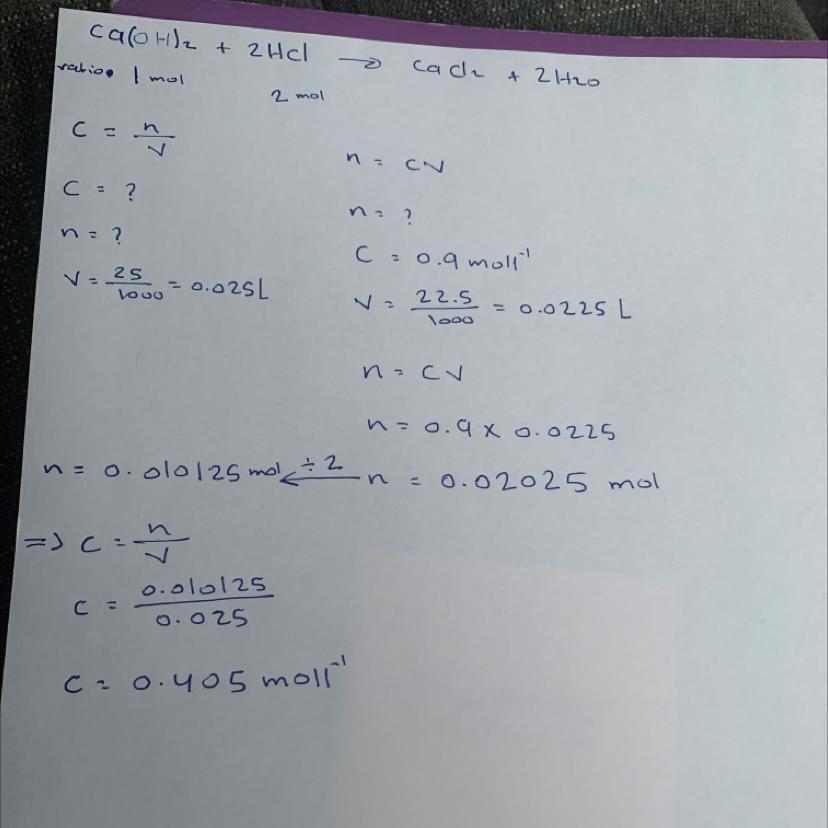 Ca(OH)₂ + 2HCl → CaCl₂ + 2H₂O
ratio 1 mol 2 mol
C = n/V
C = ?
n = ?
V = 25/1000 = 0.025L
n = CV
n = ?
C = 0.9 moll⁻¹
V = 22.5/1000 = 0.0225 L
n = CV
n = 0.9 × 0.0225
n = 0.010125 mol ←÷2 n = 0.02025 mol
=> C = n/V
C = 0.010125/0.025
C = 0.405 moll⁻¹